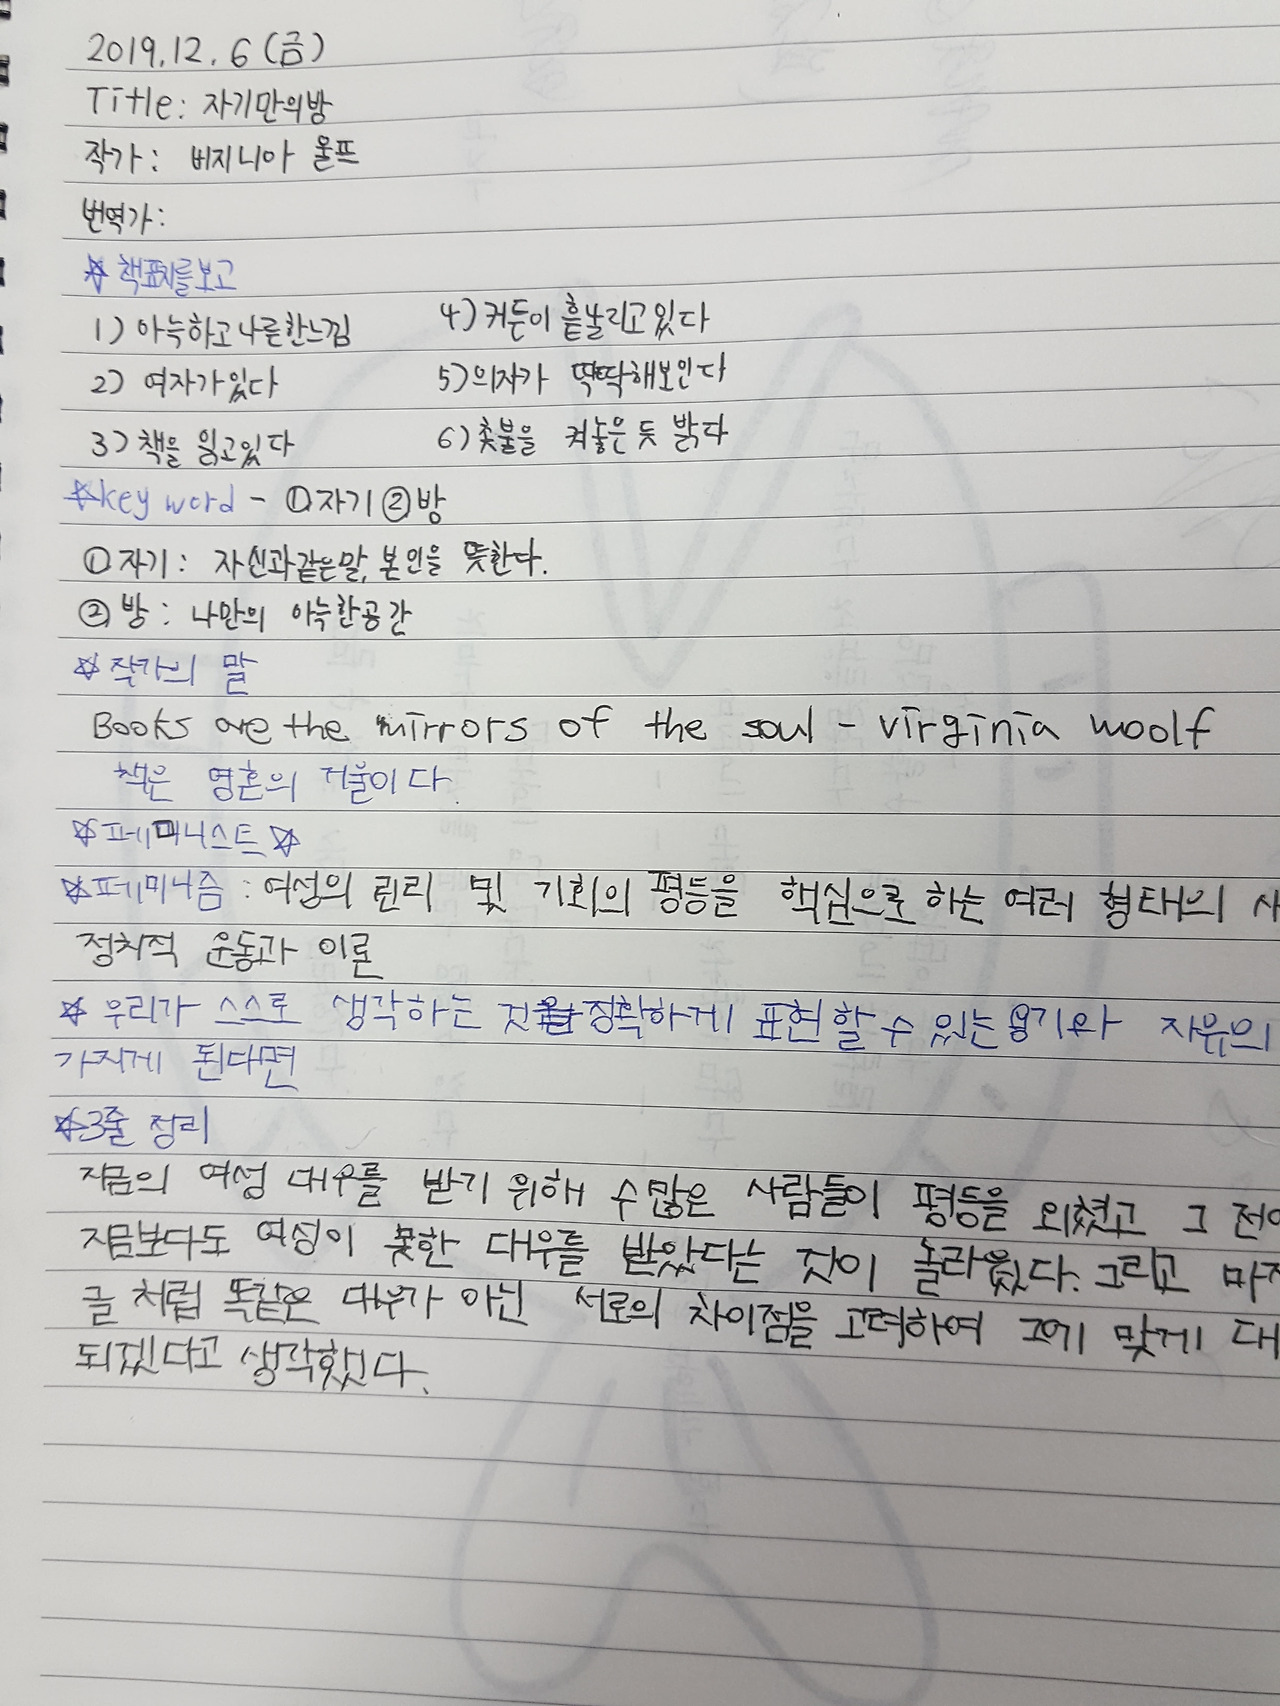 2019.12.6(금)
Title: 자기만의방
작가: 버지니아 울프
번역가:
☆책표지를보고
1) 아늑하고나른한느낌
4)커튼이 흩날리고있다
2) 여자가있다
5)의자가 딱딱해보인다
3) 책을 읽고있다
6)촛불을 켜놓은듯 밝다
☆key word - ①자기②방
①자기: 자신과같은말, 본인을 뜻한다.
②방: 나만의 아늑한공간
☆작가의 말
Books are the mirrors of the soul - virginia woolf
책은 영혼의 거울이다.
☆페미니스트☆
☆페미니즘 : 여성의 권리 및 기회의 평등을 핵심으로 하는 여러 형태의 사
정치적 운동과 이론
☆우리가 스스로 생각하는 것을 정확하게 표현할수있는용기와 자유의
가지게 된다면
☆3줄 정리
지금의 여성 대우를 받기 위해 수많은 사람들이 평등을 외쳤고 그 전에
지금보다도 여성이 못한 대우를 받았다는 것이 놀라웠다. 그리고 마지
글 처럼 똑같은 대우가 아닌 서로의 차이점을 고려하여 그에 맞게 대
되겠다고 생각했다.